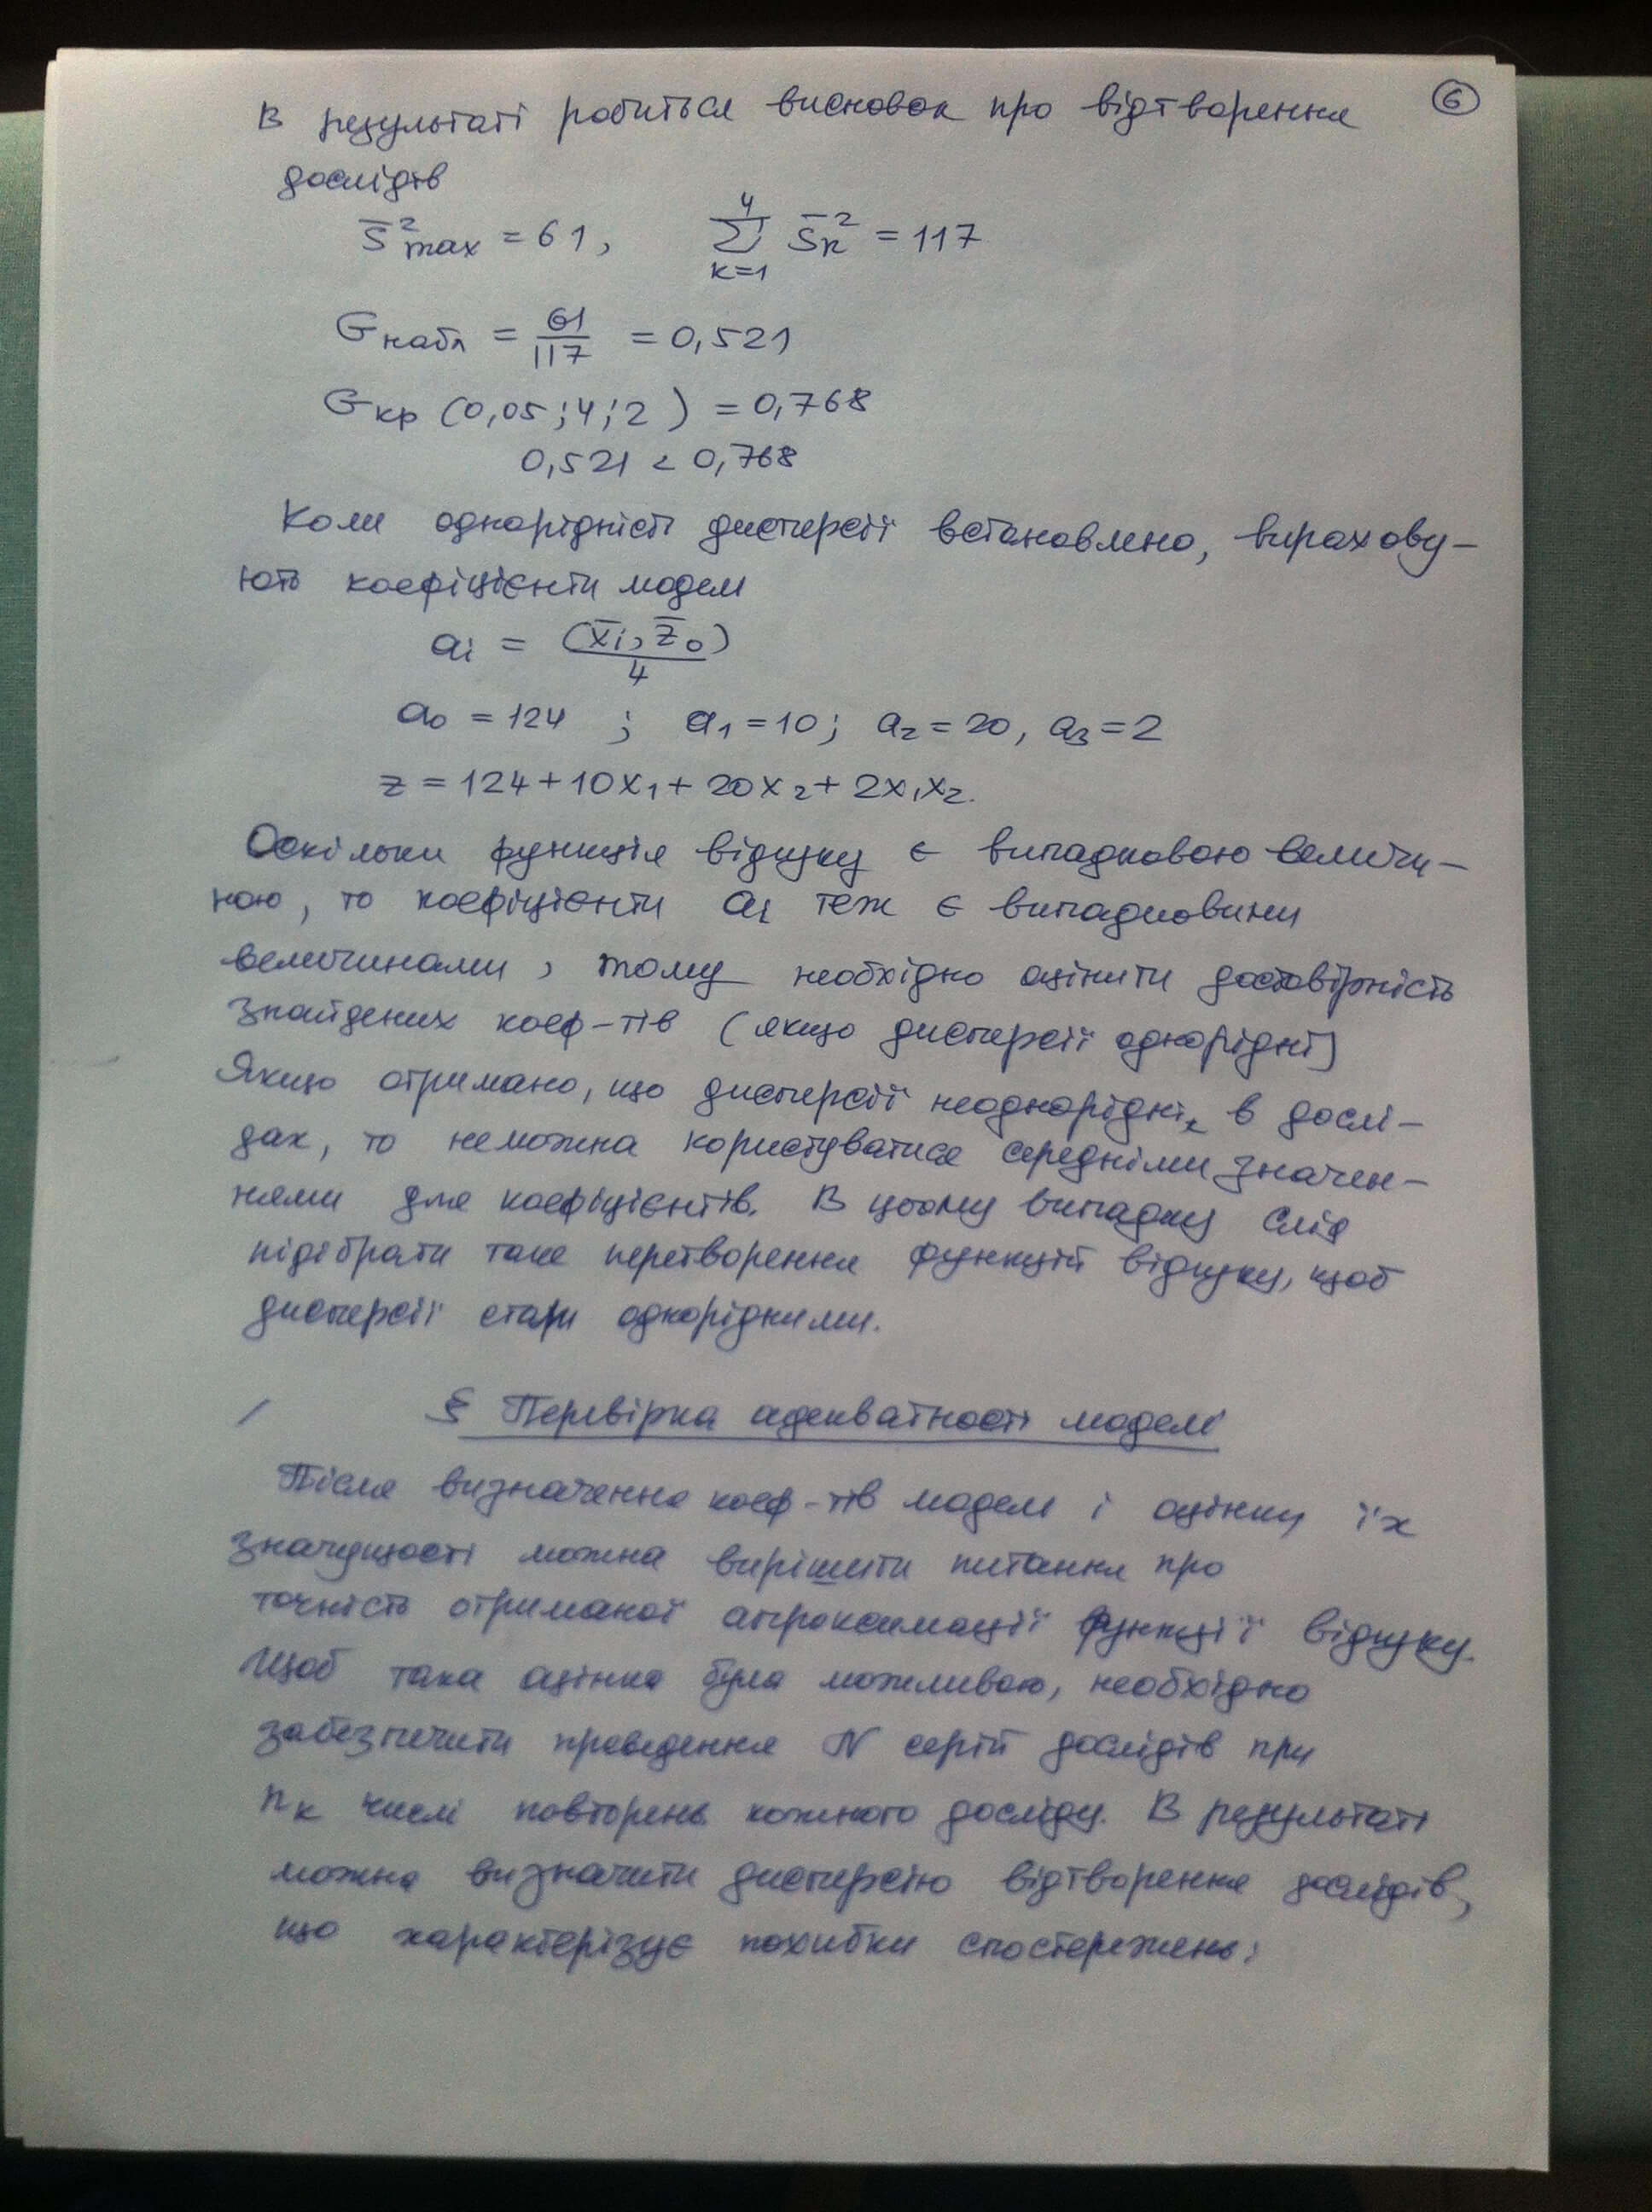 В результаті робиться висновок про відтворення
⑥
дослідів
S̄²max = 61, ∑ₖ₌₁⁴ S̄ₖ² = 117
Gнабл = 61/117 = 0,521
Gкр (0,05; 4; 2) = 0,768
0,521 < 0,768
Коли однорідність дисперсії встановлено, вирахову-
ють коефіцієнти моделі
aᵢ = (x̄ᵢ, z̄₀)/4
a₀ = 124 ; a₁ = 10; a₂ = 20, a₃ = 2
z = 124 + 10x₁ + 20x₂ + 2x₁x₂.
Оскільки функція відгуку є випадковою величи-
ною, то коефіцієнти aᵢ теж є випадковими
величинами, тому необхідно оцінити достовірність
знайдених коеф-тів (якщо дисперсії однорідні)
Якщо отримано, що дисперсії неоднорідні, в дослі-
дах, то неможна користуватися середніми значен-
нями для коефіцієнтів. В цьому випадку слід
підібрати таке перетворення функцій відгуку, щоб
дисперсії стали однорідними.
§ Перевірка адекватності моделі
Після визначення коеф-тів моделі і оцінки їх
значущості можна вирішити питання про
точність отриманої апроксимації функції відгуку.
Щоб така оцінка була можливою, необхідно
забезпечити проведення N серій дослідів при
nₖ числі повторень кожного досліду. В результаті
можна визначити дисперсію відтворення дослідів,
що характерізує похибки спостережень: